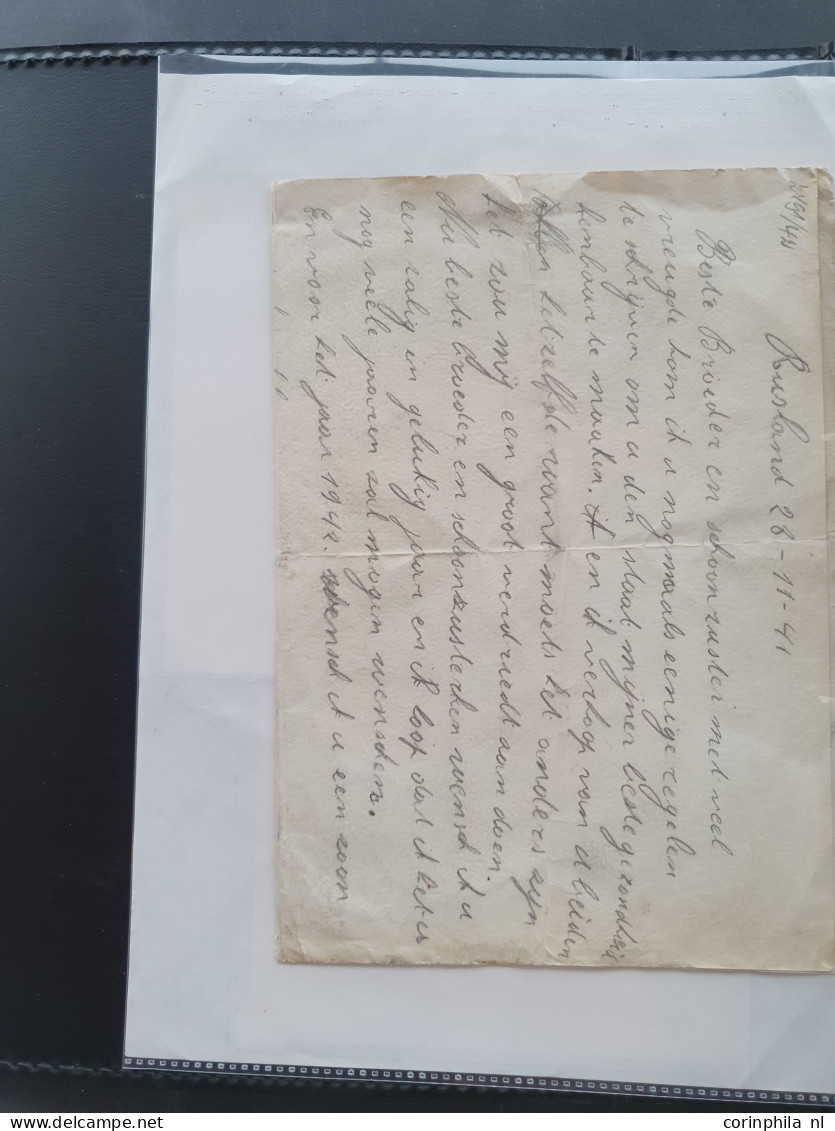 Rusland 28-11-41
Beste Broeder en schoonzuster met veel
vreugde kom ik u nogmaals eenige regelen
te schrijven om u den staat mijner beste gezondheid
kenbaar te maaken. en ik verhop van u beiden
hetzelfde want moets het anders zyn
het zou mij een groot verdriedt aan doen.
Nu beste broeder en schoonzusterken wensch ik u
een zalig in gelukig jaar en ik hoop dat ik het u
nog veele jaaren zal mogen wenschen.
En voor het jaar 1942. wensch ik u een zoon
corinphila nl